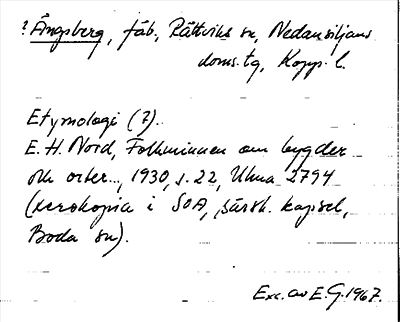 ? Ångsberg, fäb., Rättviks sn, Nedansiljans
doms.tg, Kopp. l.
Etymologi (?).
E. H. Nord, Folkminnen om bygder
och orter..., 1930, s. 22, Ulma 2794
(xerokopia i SOA, särsk. kapsel,
Boda sn).
Exc. av E. G. 1967.